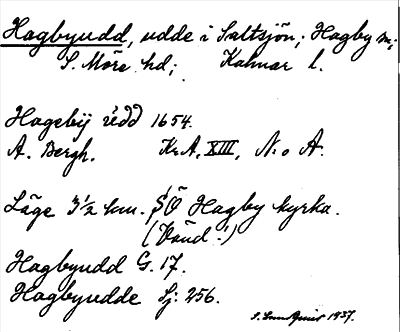 Hagbyudd, udde i Saltsjön; Hagby sn;
S. Möre hd; Kalmar l.
Hageby üdd 1654.
A. Bergh. Kr.A. XIII, N:o A.
Läge 3½ km. SÖ Hagby kyrka.
Hagbyudd G. 17.
Hagbyudde Sj: 256.
1937.